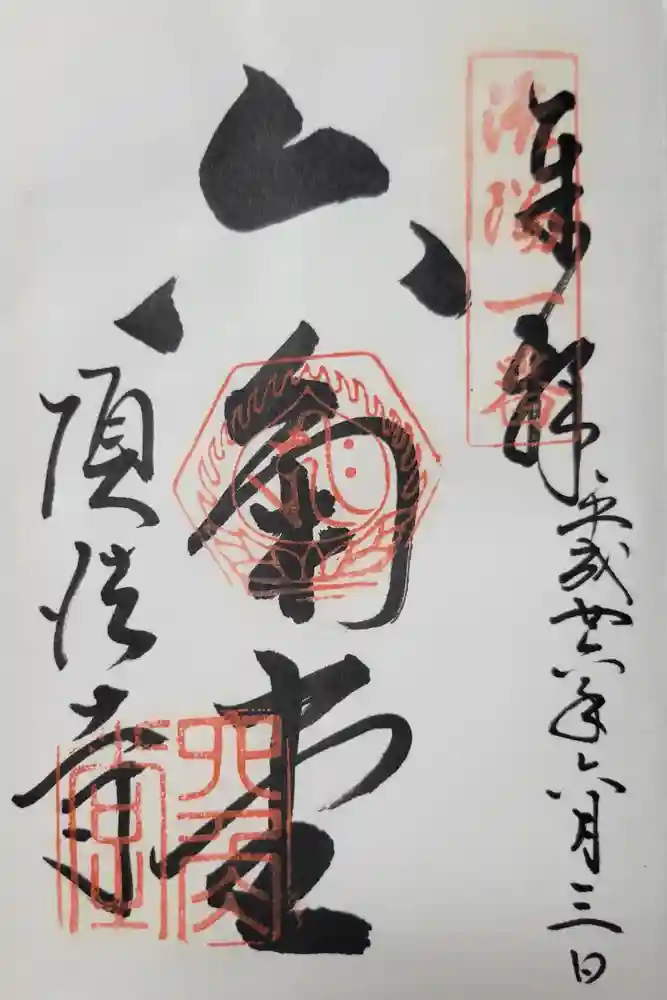 奉拝
平成廿六年六月三日
洛陽一番
六角堂
頂法寺
六角堂